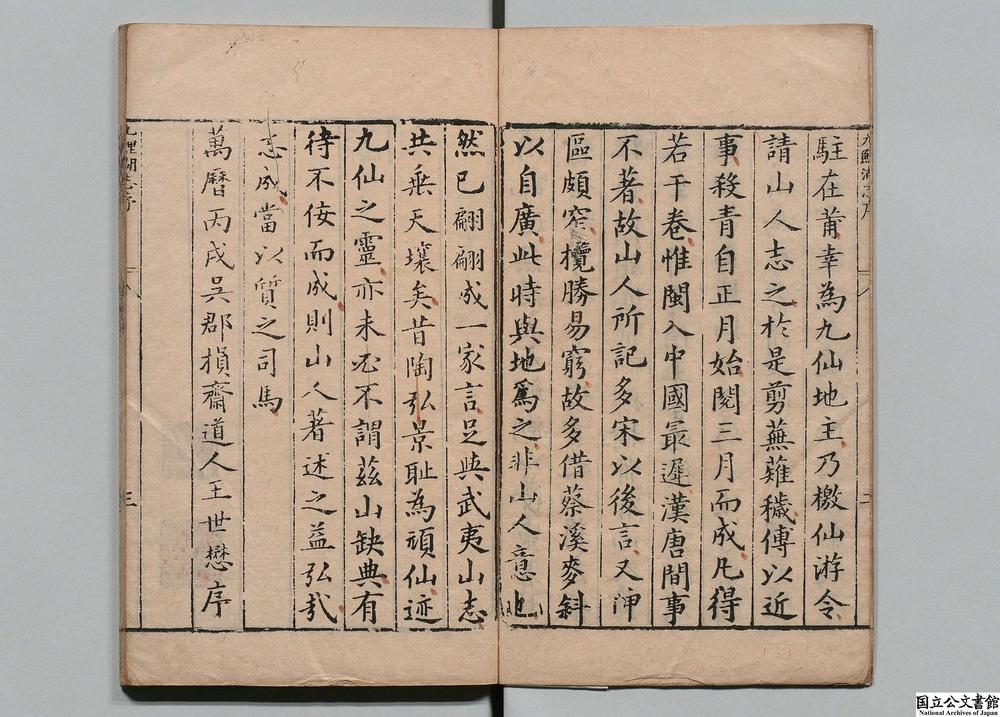 九鯉湖志序
駐在莆幸為九仙地王乃檄仙游令
請山人志之於是剪蕪薙穢傅以近
事殺青自正月始閱三月而成凡得
若干卷惟閩入中國最遲漢唐間事
不著故山人所記多宋以後言又
區頗窄攬勝易窮故多借蔡溪麥斜
以自廣此時與地爲之非山人意也
然已翩翩成一家言足與武夷山志
共乘天壤矣昔陶弘景耻為頑仙迹
九仙之靈亦未必不謂茲山缺典有
待不佞而成則山人著述之益弘哉
志成當以質之司馬
萬曆丙戌吳郡損齋道人王世懋序
九鯉湖志序
三
国立公文書館
National Archives of Japan